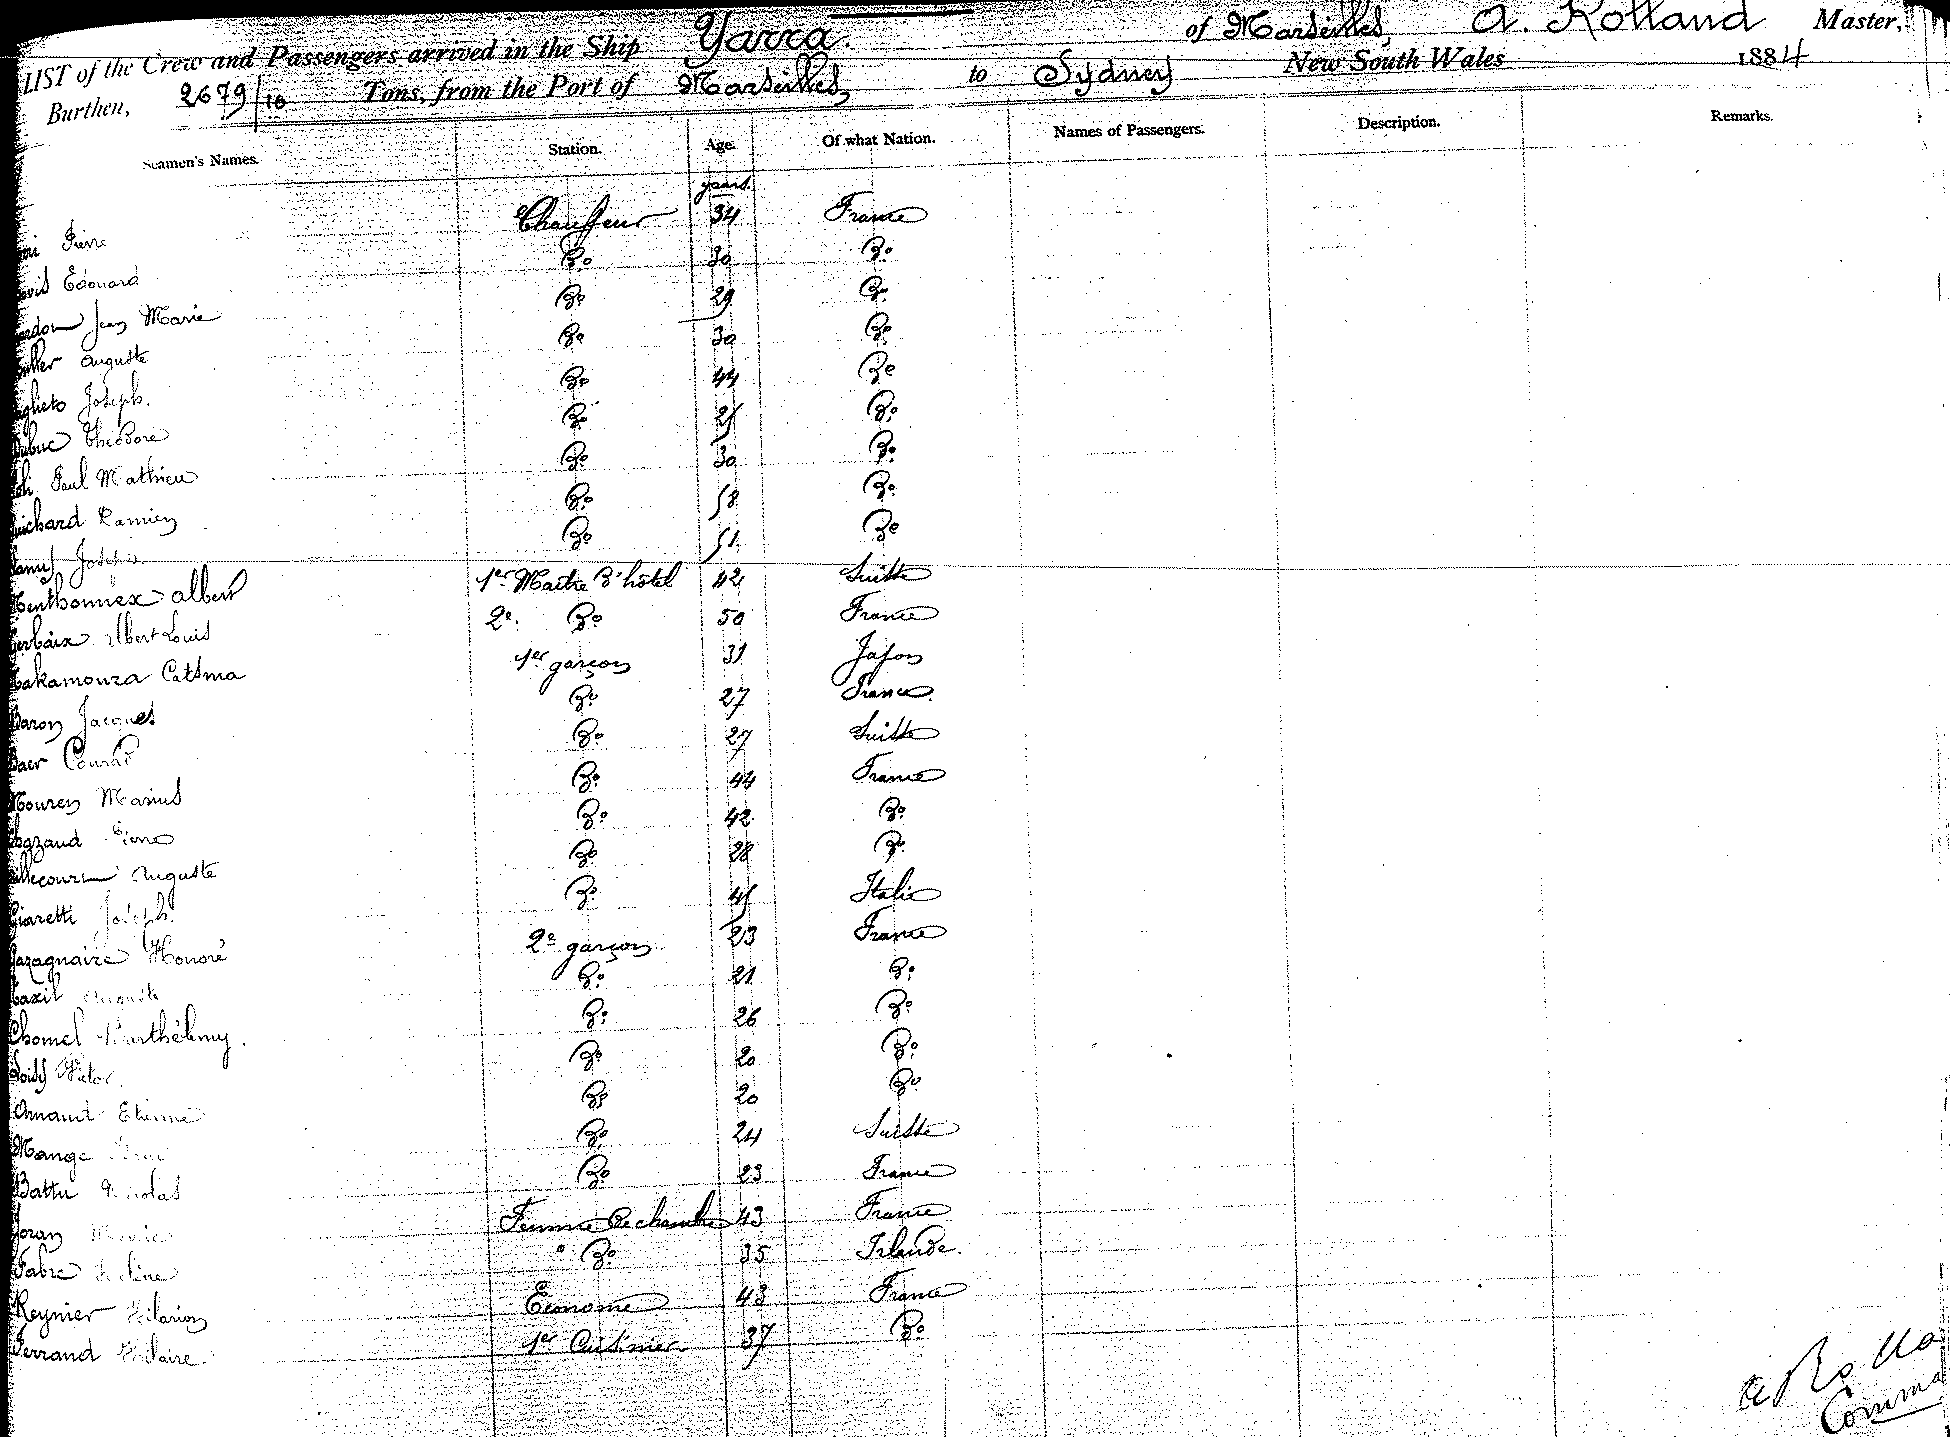 LIST of the Crew and Passengers arrived in the Ship Yarra. of Marseilles, A. Rolland Master,
Burthen, 2679/10 Tons, from the Port of Marseilles, to Sydney New South Wales 1884
Seamen's Names. Station. Age. Of what Nation. Names of Passengers. Description. Remarks.
years.
Pierre Chauffeur 34 France
Edouard Do 30 Do
Jean Marie Do 29 Do
Auguste Do 30 Do
Joseph. Do 44 Do
Théodore Do 25 Do
Paul Mathieu Do 30 Do
Damien Do 58 Do
Joseph Do 51 Do
Menthonnex Albert 1er Maitre d'hôtel 42 Suisse
Albert Louis 2e. Do 50 France
Catsma 1er garçon 31 Japon
Baron Jacques Do 27 France
Baer Conrad Do 27 Suisse
Mouren Marius Do 44 France
Pierre Do 42 Do
Auguste Do 28 Do
Giaretti Joseph. Do 45 Italie
Honoré 2e garçon 23 France
Auguste Do 21 Do
Chomel Barthélemy. Do 26 Do
Victor. Do 20 Do
Arnaud Etienne Do 20 Do
Mange Do 24 Suisse
Battu Nicolas Do 23 France
Joran Marie Femme de chambre 43 France
Fabre " Do 35 Irlande.
Reynier Hilarion Econome 43 France
Ferrand Hilaire 1er Cuisinier 37 Do